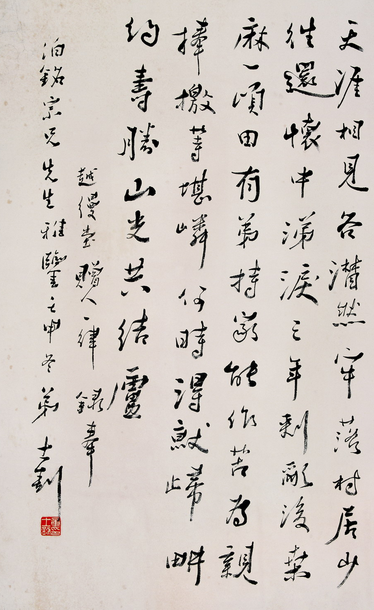 天涯相見各潸然牢落村居少
往還懷中涕淚三年刺亂後桑
麻一頃田有弟持家能作苦為親
捧檄等堪憐何時得歸耕
約壽勝山光共結廬
越縵堂贈人一律錄奉
伯銘宗兄先生雅鑒壬申冬弟士釗